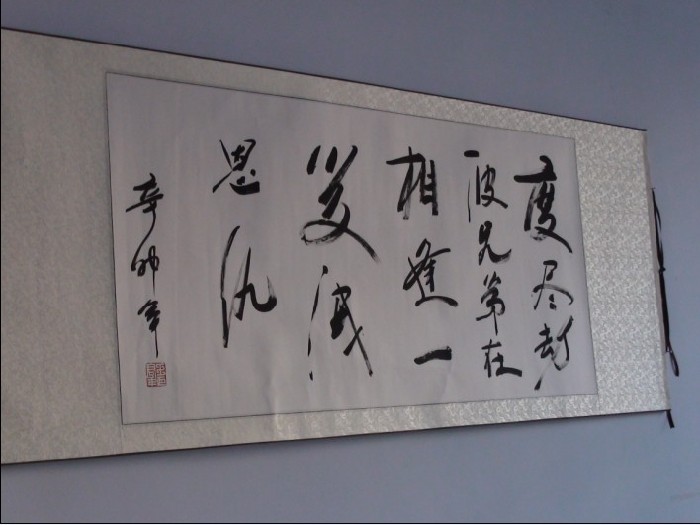 度尽劫
波兄弟在
相逢一
笑泯
恩仇
辛卯年